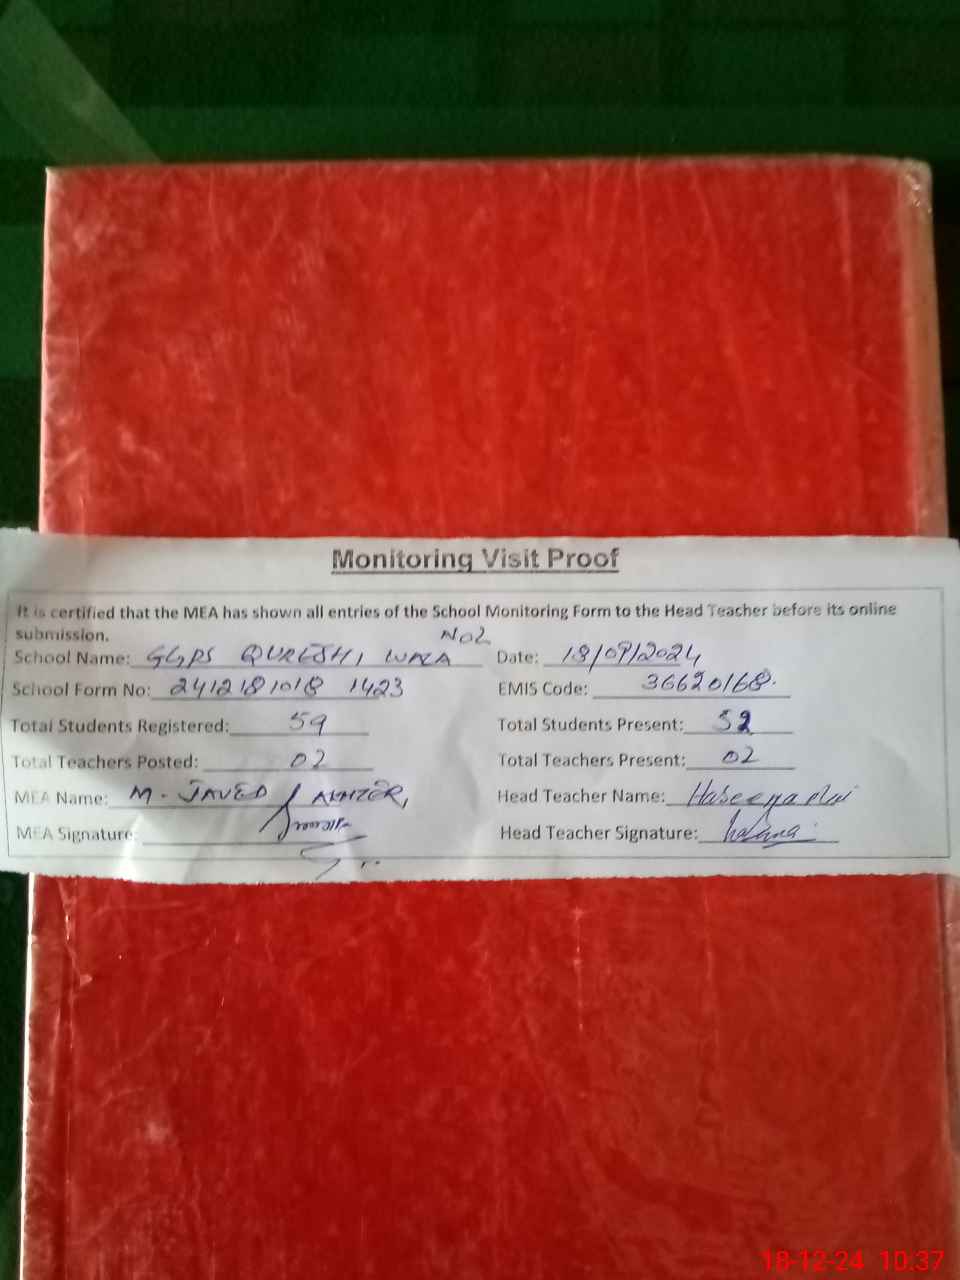 Monitoring Visit Proof
It is certified that the MEA has shown all entries of the School Monitoring Form to the Head Teacher before its online
submission.
No2
School Name: GGPS QURESHI WALA Date: 18/09/2024
School Form No: 2412181018 1423 EMIS Code: 36620168
Total Students Registered: 59 Total Students Present: 52
Total Teachers Posted: 02 Total Teachers Present: 02
MEA Name: M. JAVED AKHTER, Head Teacher Name: Haseena
MEA Signature: Head Teacher Signature:
18-12-24 10:37